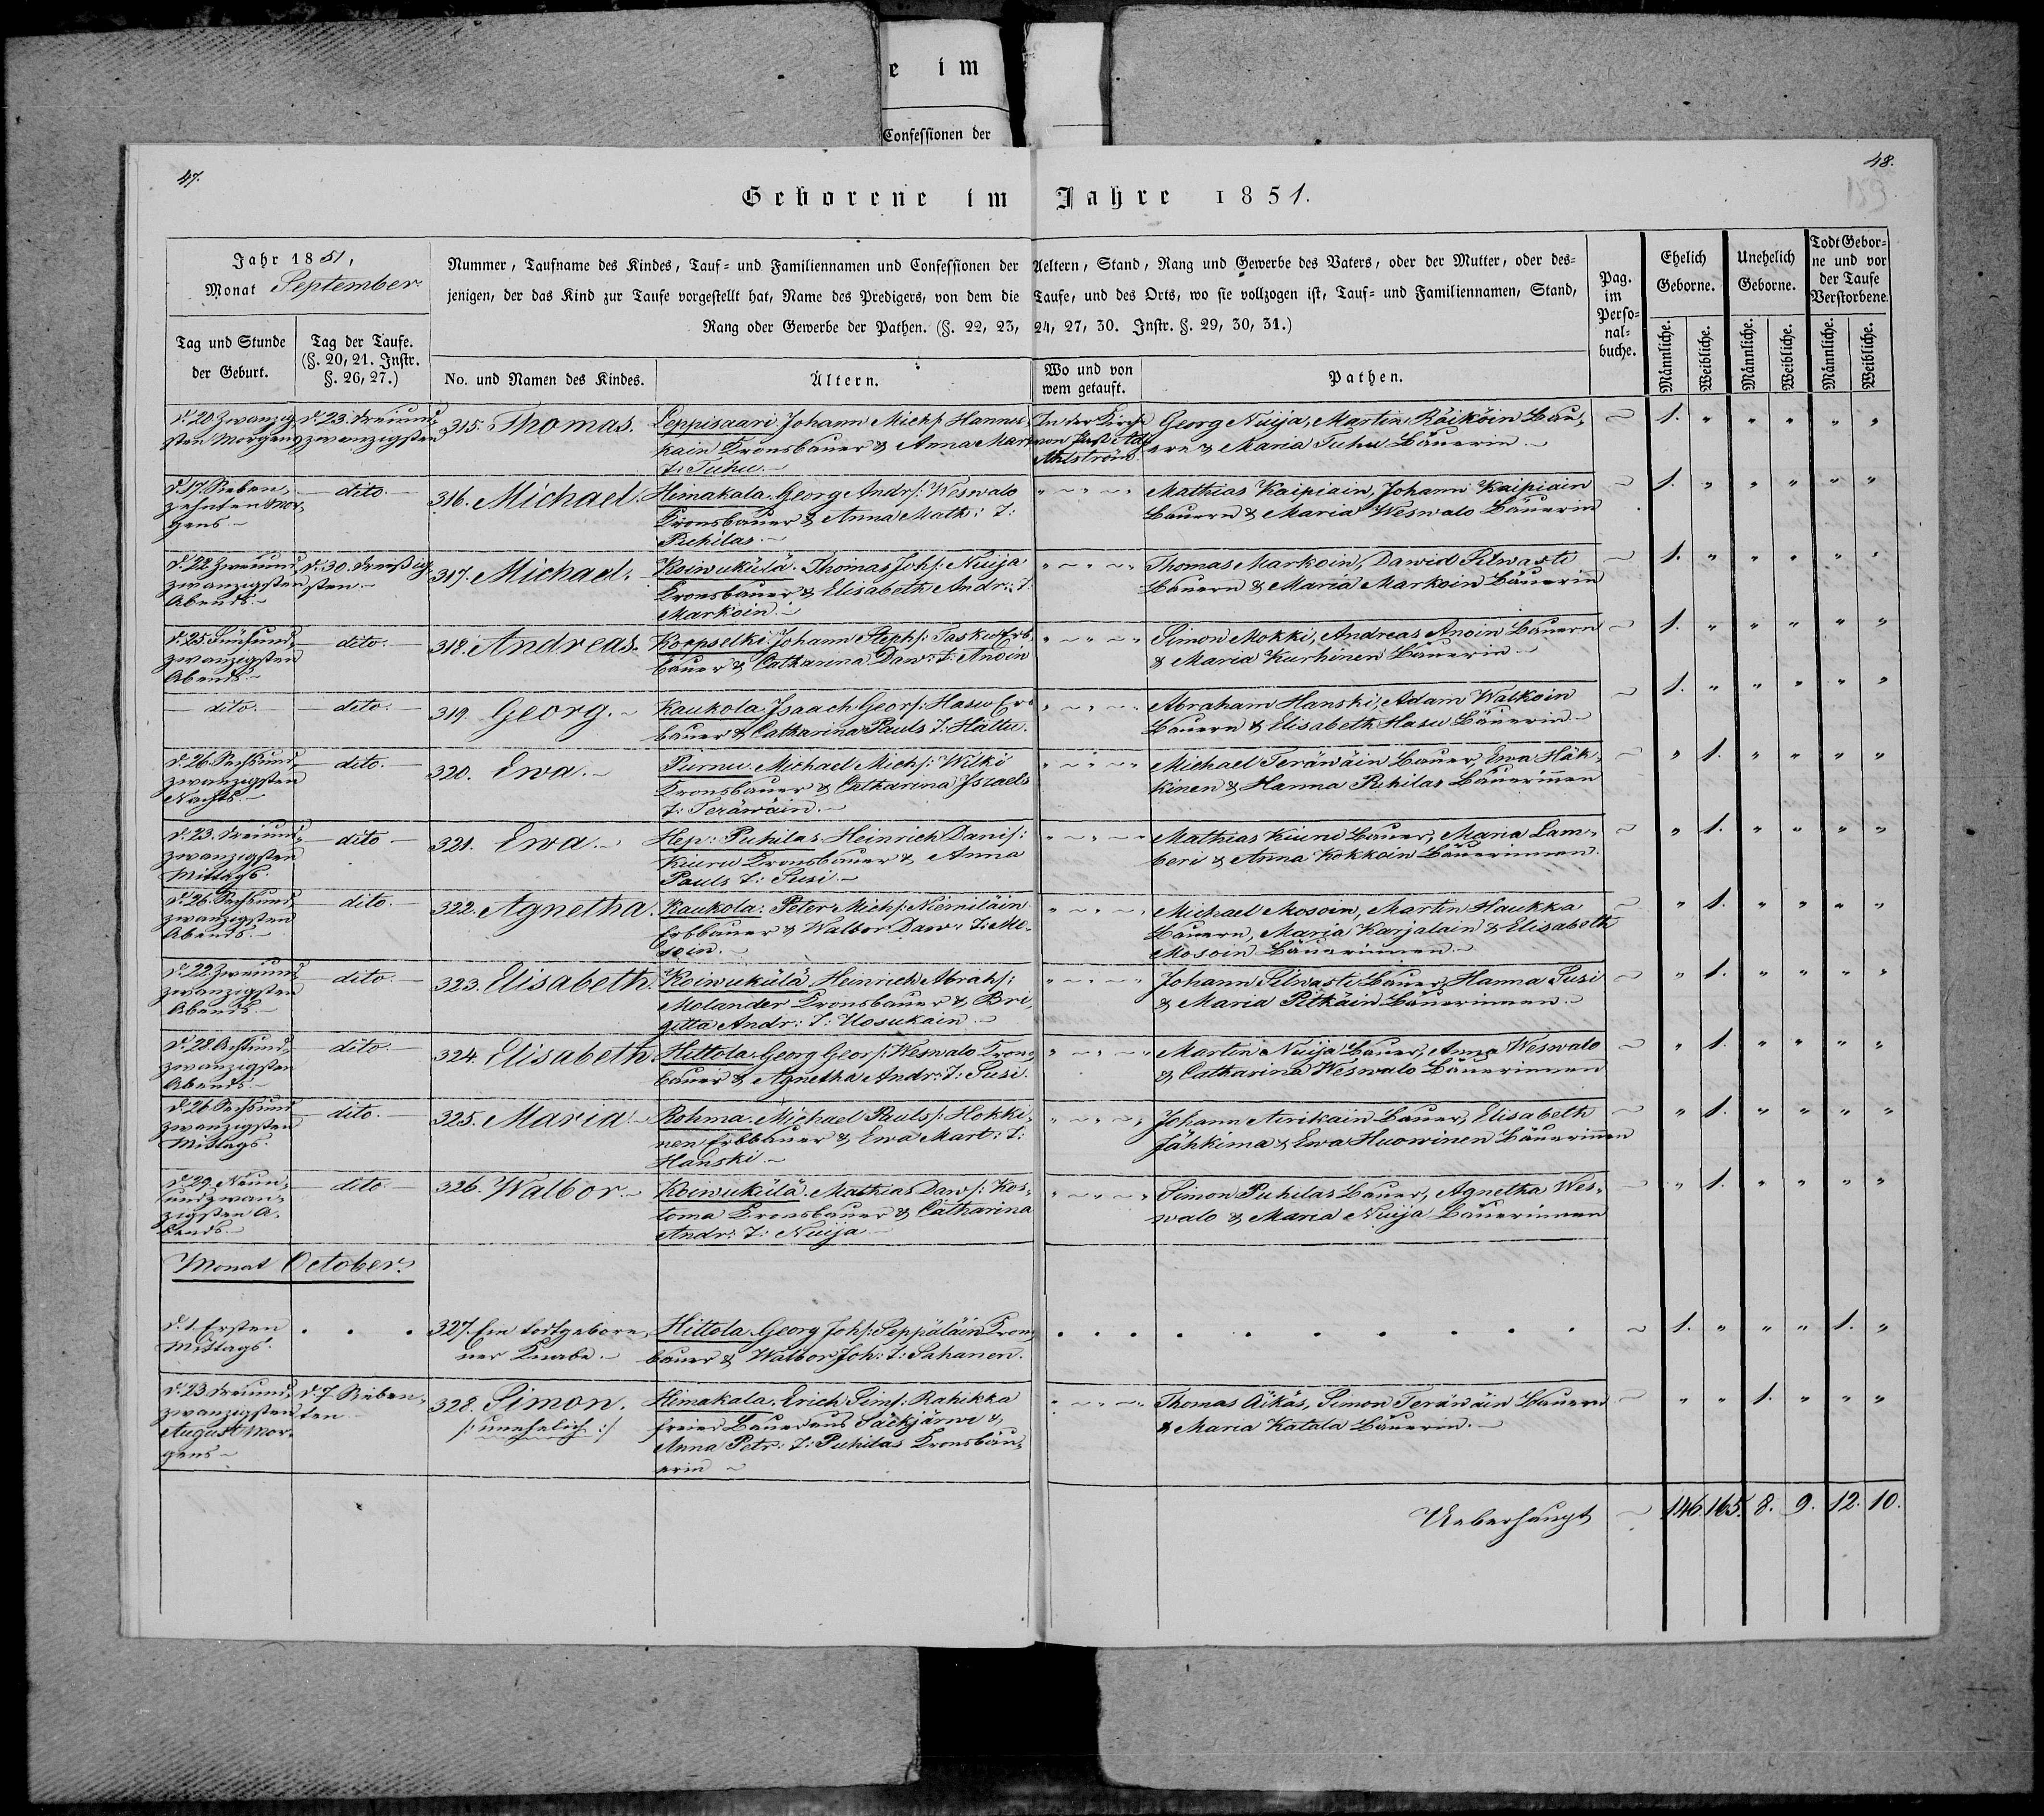 e im
Confessionen der
47.
48.
Geborene im Jahre 1851.
Jahr 1851,
Monat September
Nummer, Taufname des Kindes, Tauf- und Familiennamen und Confessionen der Aeltern, Stand, Rang und Gewerbe des Vaters, oder der Mutter, oder des-
jenigen, der das Kind zur Taufe vorgestellt hat, Name des Predigers, von dem die Taufe, und des Orts, wo sie vollzogen ist, Tauf- und Familiennamen, Stand,
Rang oder Gewerbe der Pathen. (§. 22, 23, 24, 27, 30. Instr. §. 29, 30, 31.)
Pag. im Perso-nal-buche.
Ehelich Geborne.
Unehelich Geborne.
Todt Gebor-ne und vor der Taufe Verstorbene.
Tag und Stunde der Geburt.
Tag der Taufe. (§. 20, 21. Instr. §. 26, 27.)
No. und Namen des Kindes.
Ältern.
Wo und von wem getauft.
Pathen.
Männliche. Weibliche. Männliche. Weibliche. Männliche. Weibliche.
d. 20. Zwanzig- d. 23. Dreiund- 315. Thomas. Leppisaari. Johann Michs. Hannu- In der Kirche Georg Nuija, Martin Räiköin Bau- ~ 1. " " " " "
sten Morgens zwanzigsten kain Kronsbauer & Anna Mart von Past. Adj ern & Maria Tuhu Bäuerin ~
T: Tuhu. ~ Ahlström
d. 17. Sieben- dito. 316. Michael. Himakala. Georg Andrs: Weswalo " ~ " ~ " Mathias Kaipiain, Johann Kaipiain ~ 1. " " " " "
zehnten Mor- Kronsbauer & Anna Math: T: Bauern & Maria Weswalo Bäuerin
gens ~ Puhilas. ~
d. 22. Zweiund- d. 30. Dreißig- 317. Michael. Koiwukülä. Thomas Johs. Nuija " ~ " ~ " Thomas Markoin, Dawid Silwasti ~ 1. " " " " "
zwanzigsten sten. ~ Kronsbauer & Elisabeth Andr: T. Bauern & Maria Markoin Bäuerin
Abends. ~ Markoin. ~
d. 25. Fünfund- dito. 318. Andreas. Koppselki. Johann Stephs: Taskin Erb- " ~ " ~ " Simon Mokki, Andreas Anoin Bauern ~ 1. " " " " "
zwanzigsten bauer & Catharina Daw: T: Anoin & Maria Kurhinen Bäuerin ~
Abends ~
dito. dito. 319. Georg. ~ Kaukola. Isaach Geors: Hasu Erb- " ~ " ~ " Abraham Hanski, Adam Walkoin ~ 1. " " " " "
bauer & Catharina Pauls T: Hattu. Bauern & Elisabeth Hasu Bäuerin ~
d. 26. Sechsund- dito. 320. Ewa. ~ Purnu. Michael Michs: Wilki " ~ " ~ " Michael Teräwäin Bauer, Ewa Häk- ~ " 1. " " " "
zwanzigsten Kronsbauer & Catharina Israels kinen & Hanna Puhilas Bäuerinnen
Nachts. ~ T: Teräwäin. ~
d. 23. Dreiund- dito 321. Ewa. ~ Hep: Puhilas. Heinrich Danis: " ~ " ~ " Mathias Kiuru Bauer, Maria Lam- ~ " 1. " " " "
zwanzigsten Kiuru Kronsbauer & Anna beri & Anna Kokkoin Bäuerinnen
Mittags. Pauls T: Susi. ~
d. 26. Sechsund- dito. 322. Agnetha. Kaukola: Peter Michs: Niemiläin " ~ " ~ " Michael Mosoin, Martin Haukka ~ " 1. " " " "
zwanzigsten Erbbauer & Walbor Daw: T: Mo- Bauern, Maria Karjalain & Elisabeth
Abends. ~ soin. ~ Mosoin Bäuerinnen. ~
d. 22. Zweiund- dito. 323. Elisabeth. Koiwukülä. Heinrich Abrahs: " ~ " ~ " Johann Silwasti Bauer, Hanna Susi ~ " 1. " " " "
zwanzigsten Molander Kronsbauer & Bri- & Maria Pitkäin Bäuerinnen ~
Abends. ~ gitta Andr: T: Uosukain ~
d. 28. Achtund- dito. 324. Elisabeth. Hittola. Georg Geors: Weswalo Krons- " ~ " ~ " Martin Nuija Bauer, Anna Weswalo ~ " 1. " " " "
zwanzigsten bauer & Agnetha Andr: T: Susi. & Catharina Weswalo Bäuerinnen
Abends ~
d. 26. Sechsund- dito. 325. Maria. ~ Rohma. Michael Pauls: Hokki- " ~ " ~ " Johann Airikain Bauer, Elisabeth ~ " 1. " " " "
zwanzigsten nen Erbbauer & Ewa Mart: T: Jähkima & Ewa Huowinen Bäuerinnen
Mittags. Hanski. ~
d. 29. Neun- dito 326. Walbor. ~ Koiwukülä. Mathias Daws: Kos- " ~ " ~ " Simon Puhilas Bauer, Agnetha Wes- ~ " 1. " " " "
undzwan- toma Kronsbauer & Catharina walo & Maria Nuija Bäuerinnen
zigsten A- Andr: T: Nuija ~
bends. ~
Monat October.
d. 1. Ersten . . . 327. Ein todtgebore- Hittola. Georg Johs: Seppäläin Krons- . . . . . . . . . ~ 1. " " " 1. "
Mittags. ner Knabe. ~ bauer & Walbor Joh: T: Sahanen.
d. 23. Dreiund- d. 7. Sieben- 328. Simon. Himakala. Erich Sims: Rahikka " ~ " ~ " Thomas Äikäs, Simon Teräwäin Bauern ~ " " 1. " " "
zwanzigsten ten /: unehelich :/ freier Bauer aus Säckjärwi & & Maria Katala Bäuerin. ~
August Mor- Anna Petr: T: Puhilas Kronsbäu-
gens ~ erin ~
Ueberhaupt ~ 146. 165. 8. 9. 12. 10.